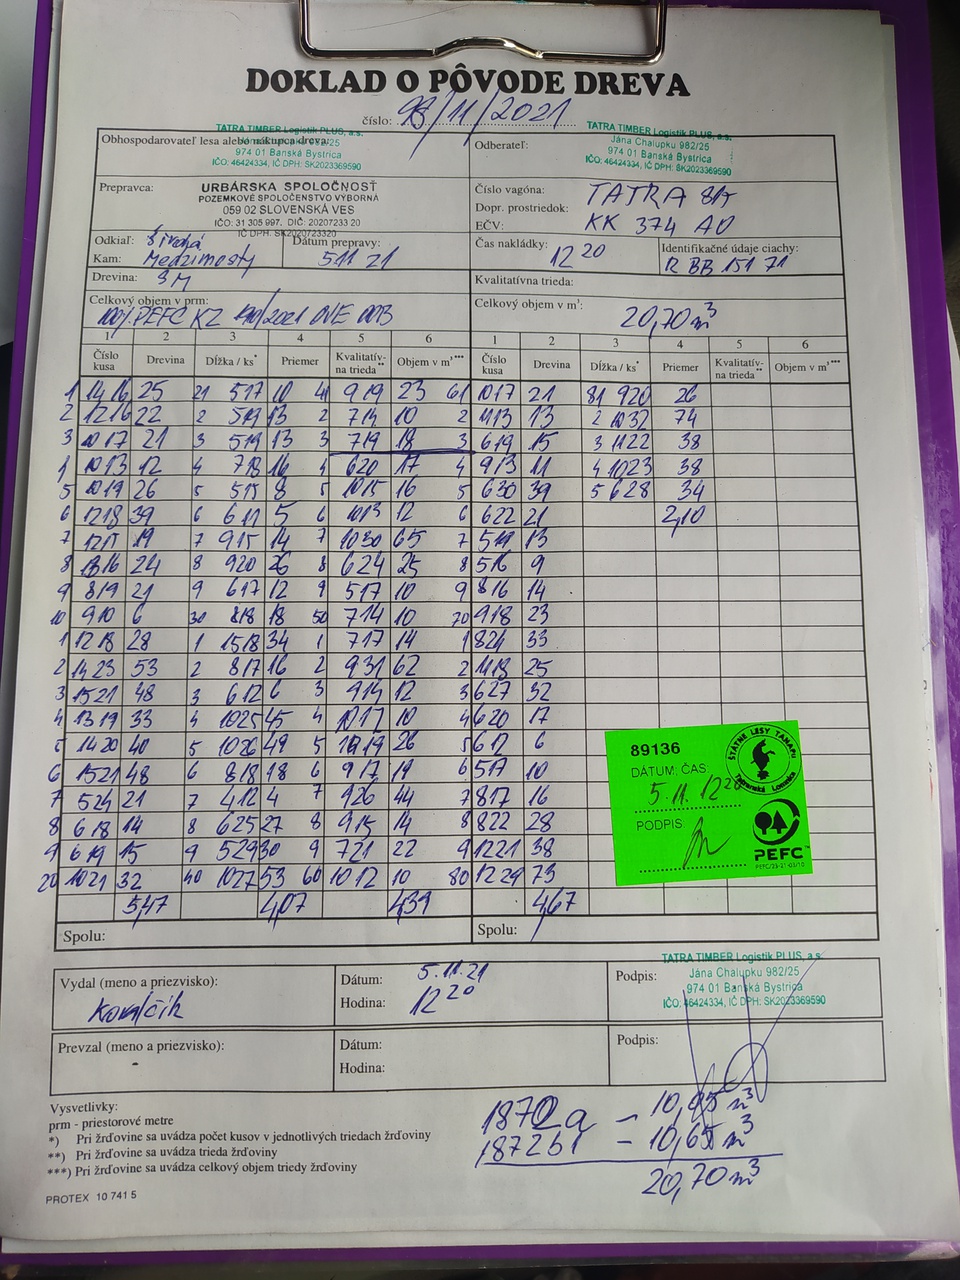 DOKLAD O PÔVODE DREVA
číslo: 98/11/2021
Obhospodarovateľ lesa alebo nákupca dreva:
TATRA TIMBER Logistik PLUS, a.s.
Jána Chalupku 982/25
974 01 Banská Bystrica
IČO: 46424334, IČ DPH: SK2023369590
Odberateľ:
TATRA TIMBER Logistik PLUS, a.s.
Jána Chalupku 982/25
974 01 Banská Bystrica
IČO: 46424334, IČ DPH: SK2023369590
Prepravca:
URBÁRSKA SPOLOČNOSŤ
POZEMKOVÉ SPOLOČENSTVO VÝBORNÁ
059 02 SLOVENSKÁ VES
IČO: 31 305 997, DIČ: 20207233 20
IČ DPH: SK2020723320
Číslo vagóna: TATRA 815
Dopr. prostriedok:
EČV: KK 374 AD
Odkiaľ: Široká
Kam: Medzimosty
Dátum prepravy:
5 11 21
Čas nakládky:
12 20
Identifikačné údaje ciachy:
R BB 151 71
Drevina: SM
Kvalitatívna trieda:
Celkový objem v prm:
100% PEFC KZ 190/2021 OVE 003
Celkový objem v m³:
20,70 m³
1 2 3 4 5 6 1 2 3 4 5 6
Číslo kusa Drevina Dĺžka / ks* Priemer Kvalitatív- na trieda** Objem v m³*** Číslo kusa Drevina Dĺžka / ks* Priemer Kvalitatív- na trieda** Objem v m³***
1 14 16 25 21 517 10 41 919 23 61 1017 21 81 920 26
2 12 16 22 2 519 13 2 714 10 2 413 13 2 1032 74
3 10 17 21 3 519 13 3 719 18 3 619 15 3 1122 38
4 10 13 12 4 718 16 4 620 17 4 913 11 4 1023 38
5 10 19 26 5 515 8 5 1015 16 5 630 39 5 628 34
6 12 18 39 6 611 5 6 1013 12 6 622 21 2,10
7 12 15 19 7 915 14 7 1030 65 7 519 13
8 13 16 24 8 920 26 8 624 25 8 516 9
9 819 21 9 617 12 9 517 10 9 816 14
10 910 6 30 818 18 50 714 10 70 918 23
1 12 18 28 1 1518 34 1 717 14 1 824 33
2 14 23 53 2 817 16 2 931 62 2 1118 25
3 1521 48 3 612 6 3 914 12 3 627 32
4 13 19 33 4 1025 45 4 1017 10 4 620 17
5 14 20 40 5 1026 49 5 1019 26 5 612 6
6 1521 48 6 818 18 6 917 19 6 517 10
7 524 21 7 412 4 7 926 44 7 817 16
8 618 14 8 625 27 8 915 14 8 822 28
9 619 15 9 529 30 9 721 22 9 1221 38
20 1021 32 40 1027 53 60 1012 10 80 1229 73
5,47 4,07 4,39 4,67
Spolu: Spolu:
89136
DÁTUM: ČAS:
5.11. 12 20
PODPIS:
ŠTÁTNE LESY TANAPU
Tatranská Lomnica
PEFC
PEFC/23-21-03/10
Vydal (meno a priezvisko):
Kovalčík
Dátum: 5.11.21
Hodina: 12 20
Podpis:
TATRA TIMBER Logistik PLUS, a.s.
Jána Chalupku 982/25
974 01 Banská Bystrica
IČO: 46424334, IČ DPH: SK2023369590
Prevzal (meno a priezvisko):
Dátum:
Hodina:
Podpis:
Vysvetlivky:
prm - priestorové metre
*) Pri žrďovine sa uvádza počet kusov v jednotlivých triedach žrďoviny
**) Pri žrďovine sa uvádza trieda žrďoviny
***) Pri žrďovine sa uvádza celkový objem triedy žrďoviny
1872a - 10,05 m³
1872b1 - 10,65 m³
20,70 m³
PROTEX 10 741 5